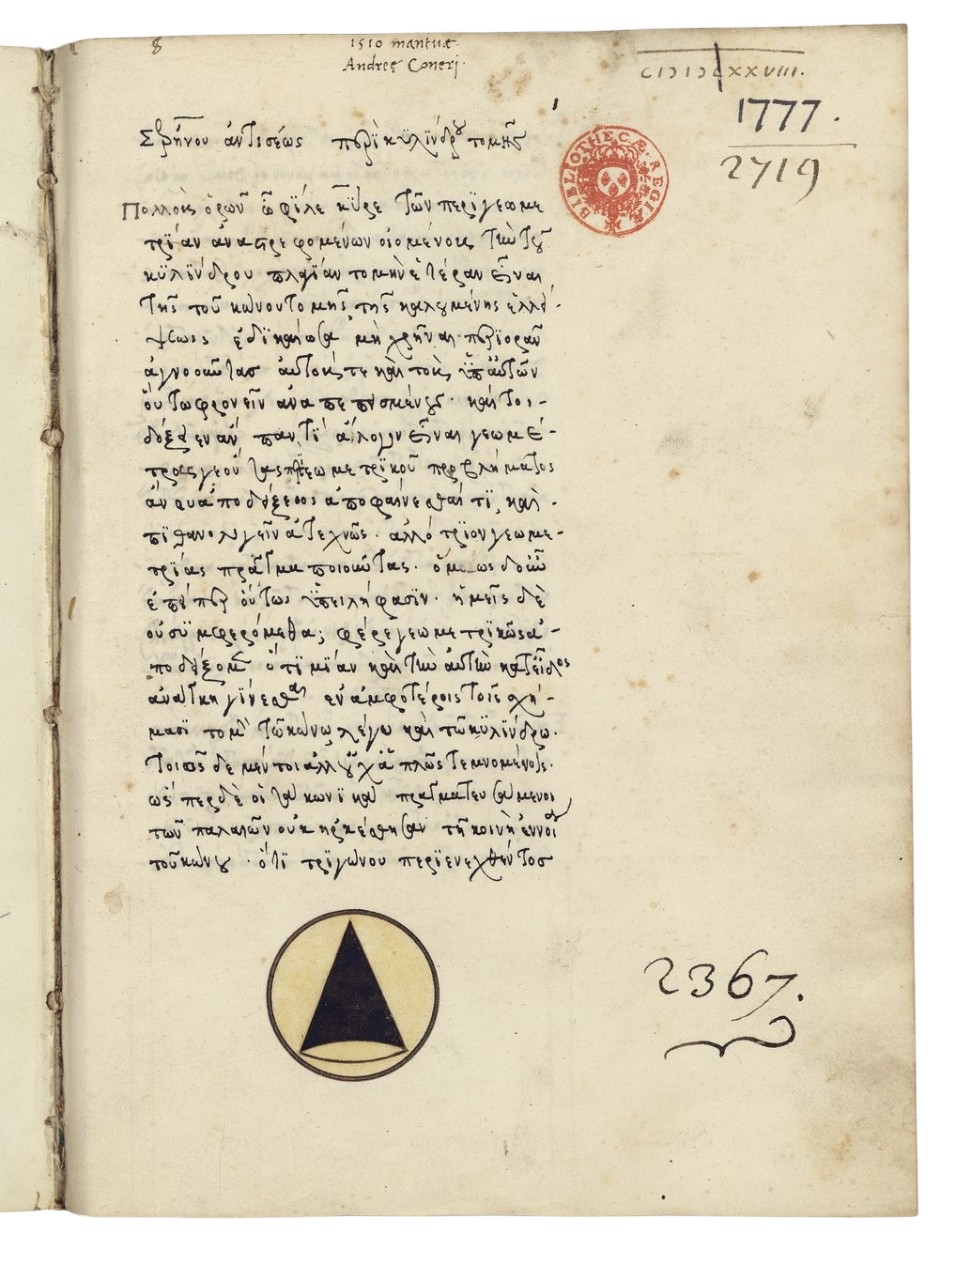 8
1510 mantuæ
Andreę Coneri
CIƆIƆCXXVIII.
1777.
2719
BIBLIOTHECÆ REGIÆ
Σερήνου ἀντισέως περὶ κυλίνδρου τομῆς
Πολλοὺς ὁρῶν ὦ φίλε κῦρε τῶν περὶ γεωμε
τρίαν ἀναστρεφομένων οἰομένους τὴν τοῦ
κυλίνδρου πλαγίαν τομὴν ἑτέραν εἶναι
τῆς τοῦ κώνου τομῆς τῆς καλουμένης ἐλλεί-
ψεως ἐδικαίωσα μὴ χρῆναι περιορᾶν
ἀγνοοῦντας αὐτούς τε καὶ τοὺς ὑπ' αὐτῶν
οὕτω φρονεῖν ἀναπεπεισμένους· καίτοι-
δόξειεν ἂν παντὶ ἄλογον εἶναι γεωμέ-
τρας γε ὄντας περὶ γεωμετρικοῦ προβλήματος
ἄνευ ἀποδείξεως ἀποφαίνεσθαί τι, καὶ
πιθανολογεῖν ἀτέχνως· ἀλλότριον γεωμε-
τρίας πρᾶγμα ποιοῦντας. ὅμως δ' οὖν
ἐπείπερ οὕτως ὑπειλήφασιν· ἡμεῖς δὲ
οὐ συμφερόμεθα; φέρε γεωμετρικῶς ἀ-
ποδείξομεν ὅτι μίαν καὶ τὴν αὐτὴν κατ' εἶδος
ἀνάγκη γίνεσθαι ἐν ἀμφοτέροις τοῖς σχή-
μασι τομὴν τῷ κώνῳ λέγω καὶ τῷ κυλίνδρῳ.
τοιῶς δε μέντοι ἀλλ' οὐχ ἁπλῶς τεμνομένοις.
ὡς περ δὲ οἱ τὰ κωνικὰ πραγματευσάμενοι
τῶν παλαιῶν οὐκ ἠρκέσθησαν τῇ κοινῇ ἐννοίᾳ
τοῦ κώνου· ὅτι τριγώνου περιενεχθέντος
2367.